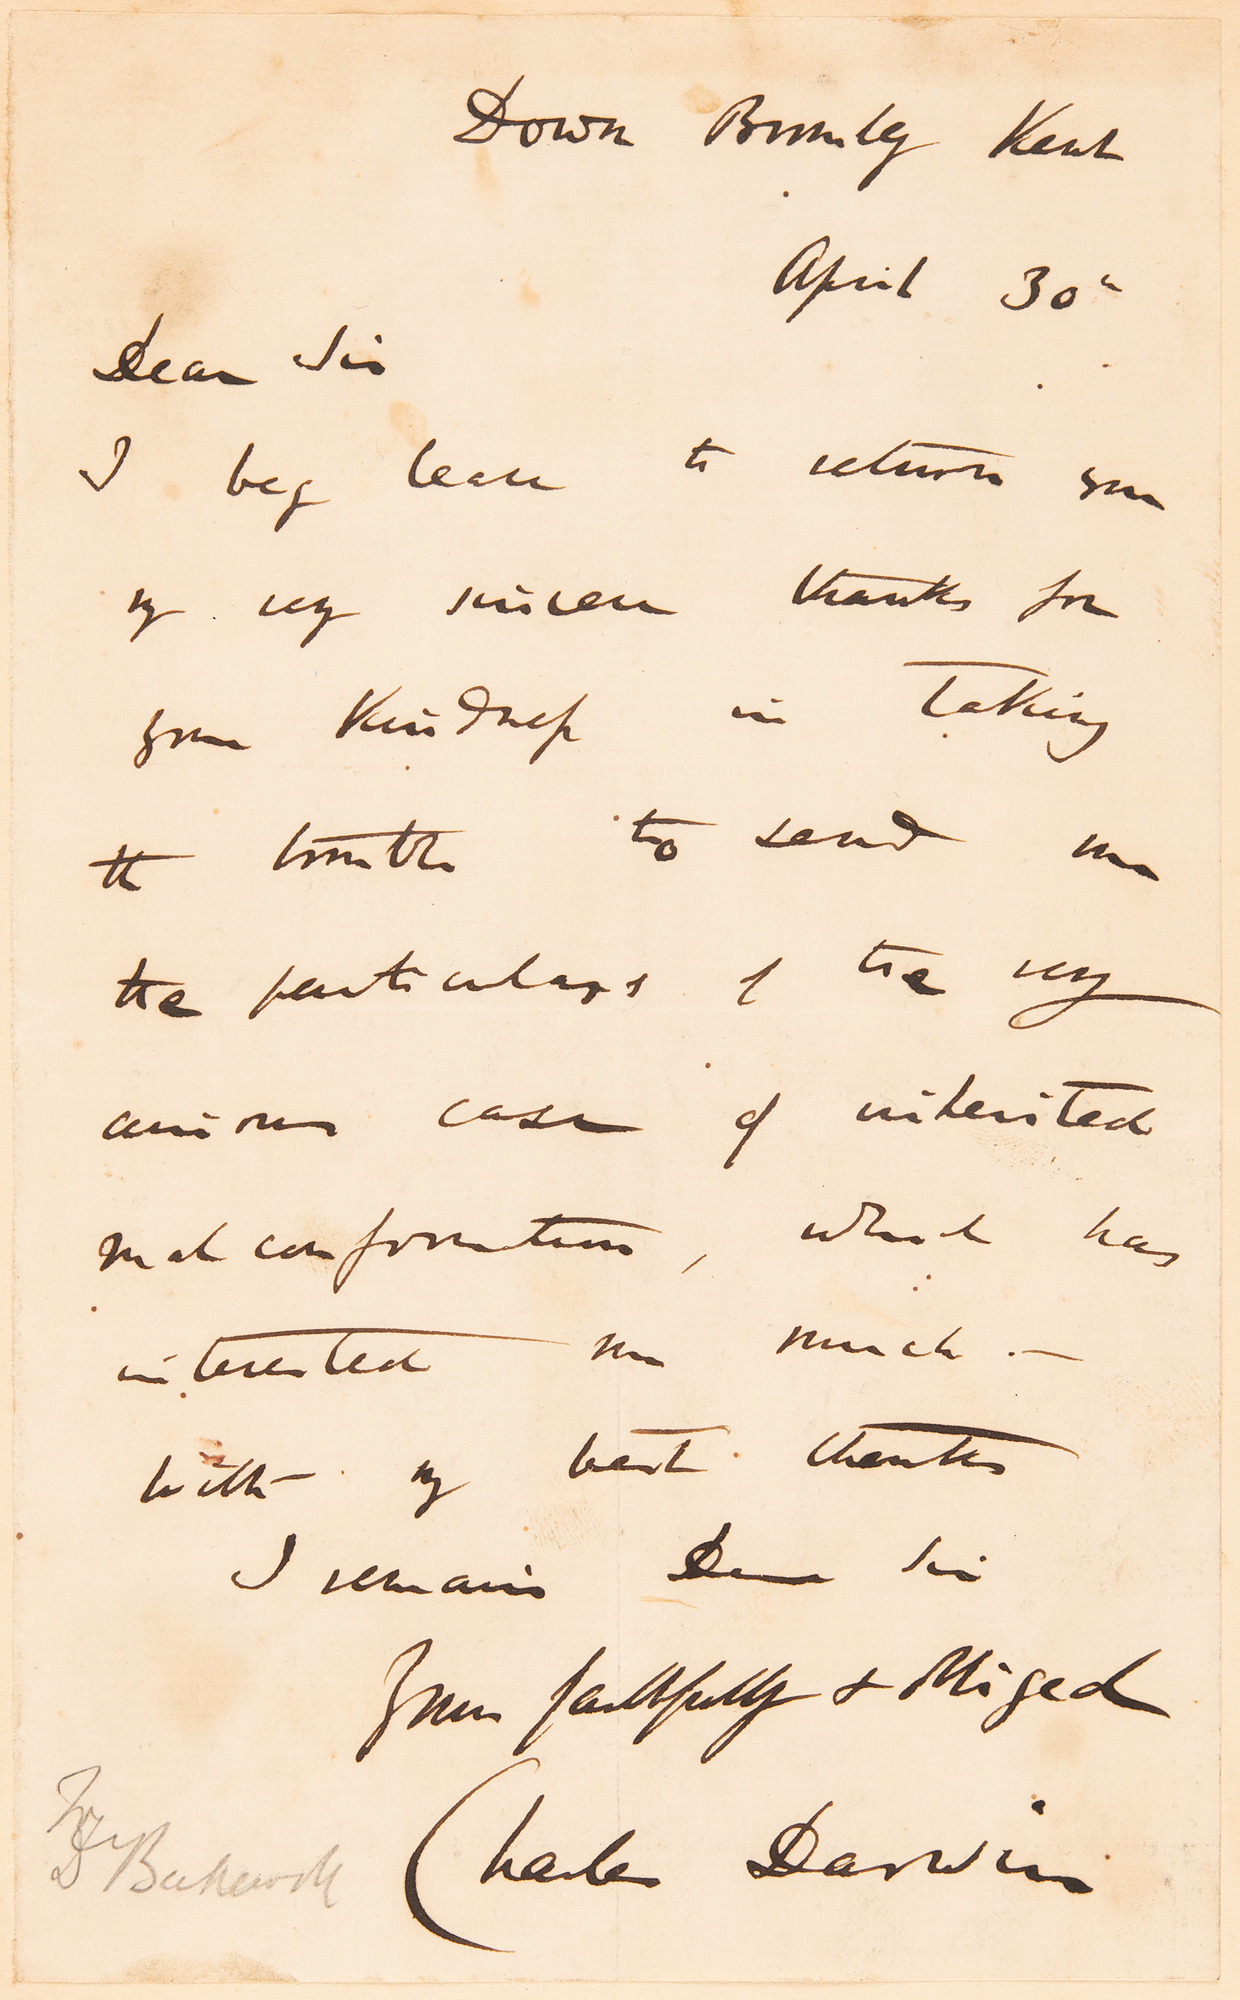 Down Bromley Kent
April 30th
Dear Sir
I beg leave to return you
my very sincere thanks for
your kindness in taking
the trouble to send me
the particulars of the very
curious case of inherited
mal conformation, which has
interested me much. —
With my best thanks
I remain Dear Sir
Yours faithfully & obliged
Charles Darwin
To
Dr